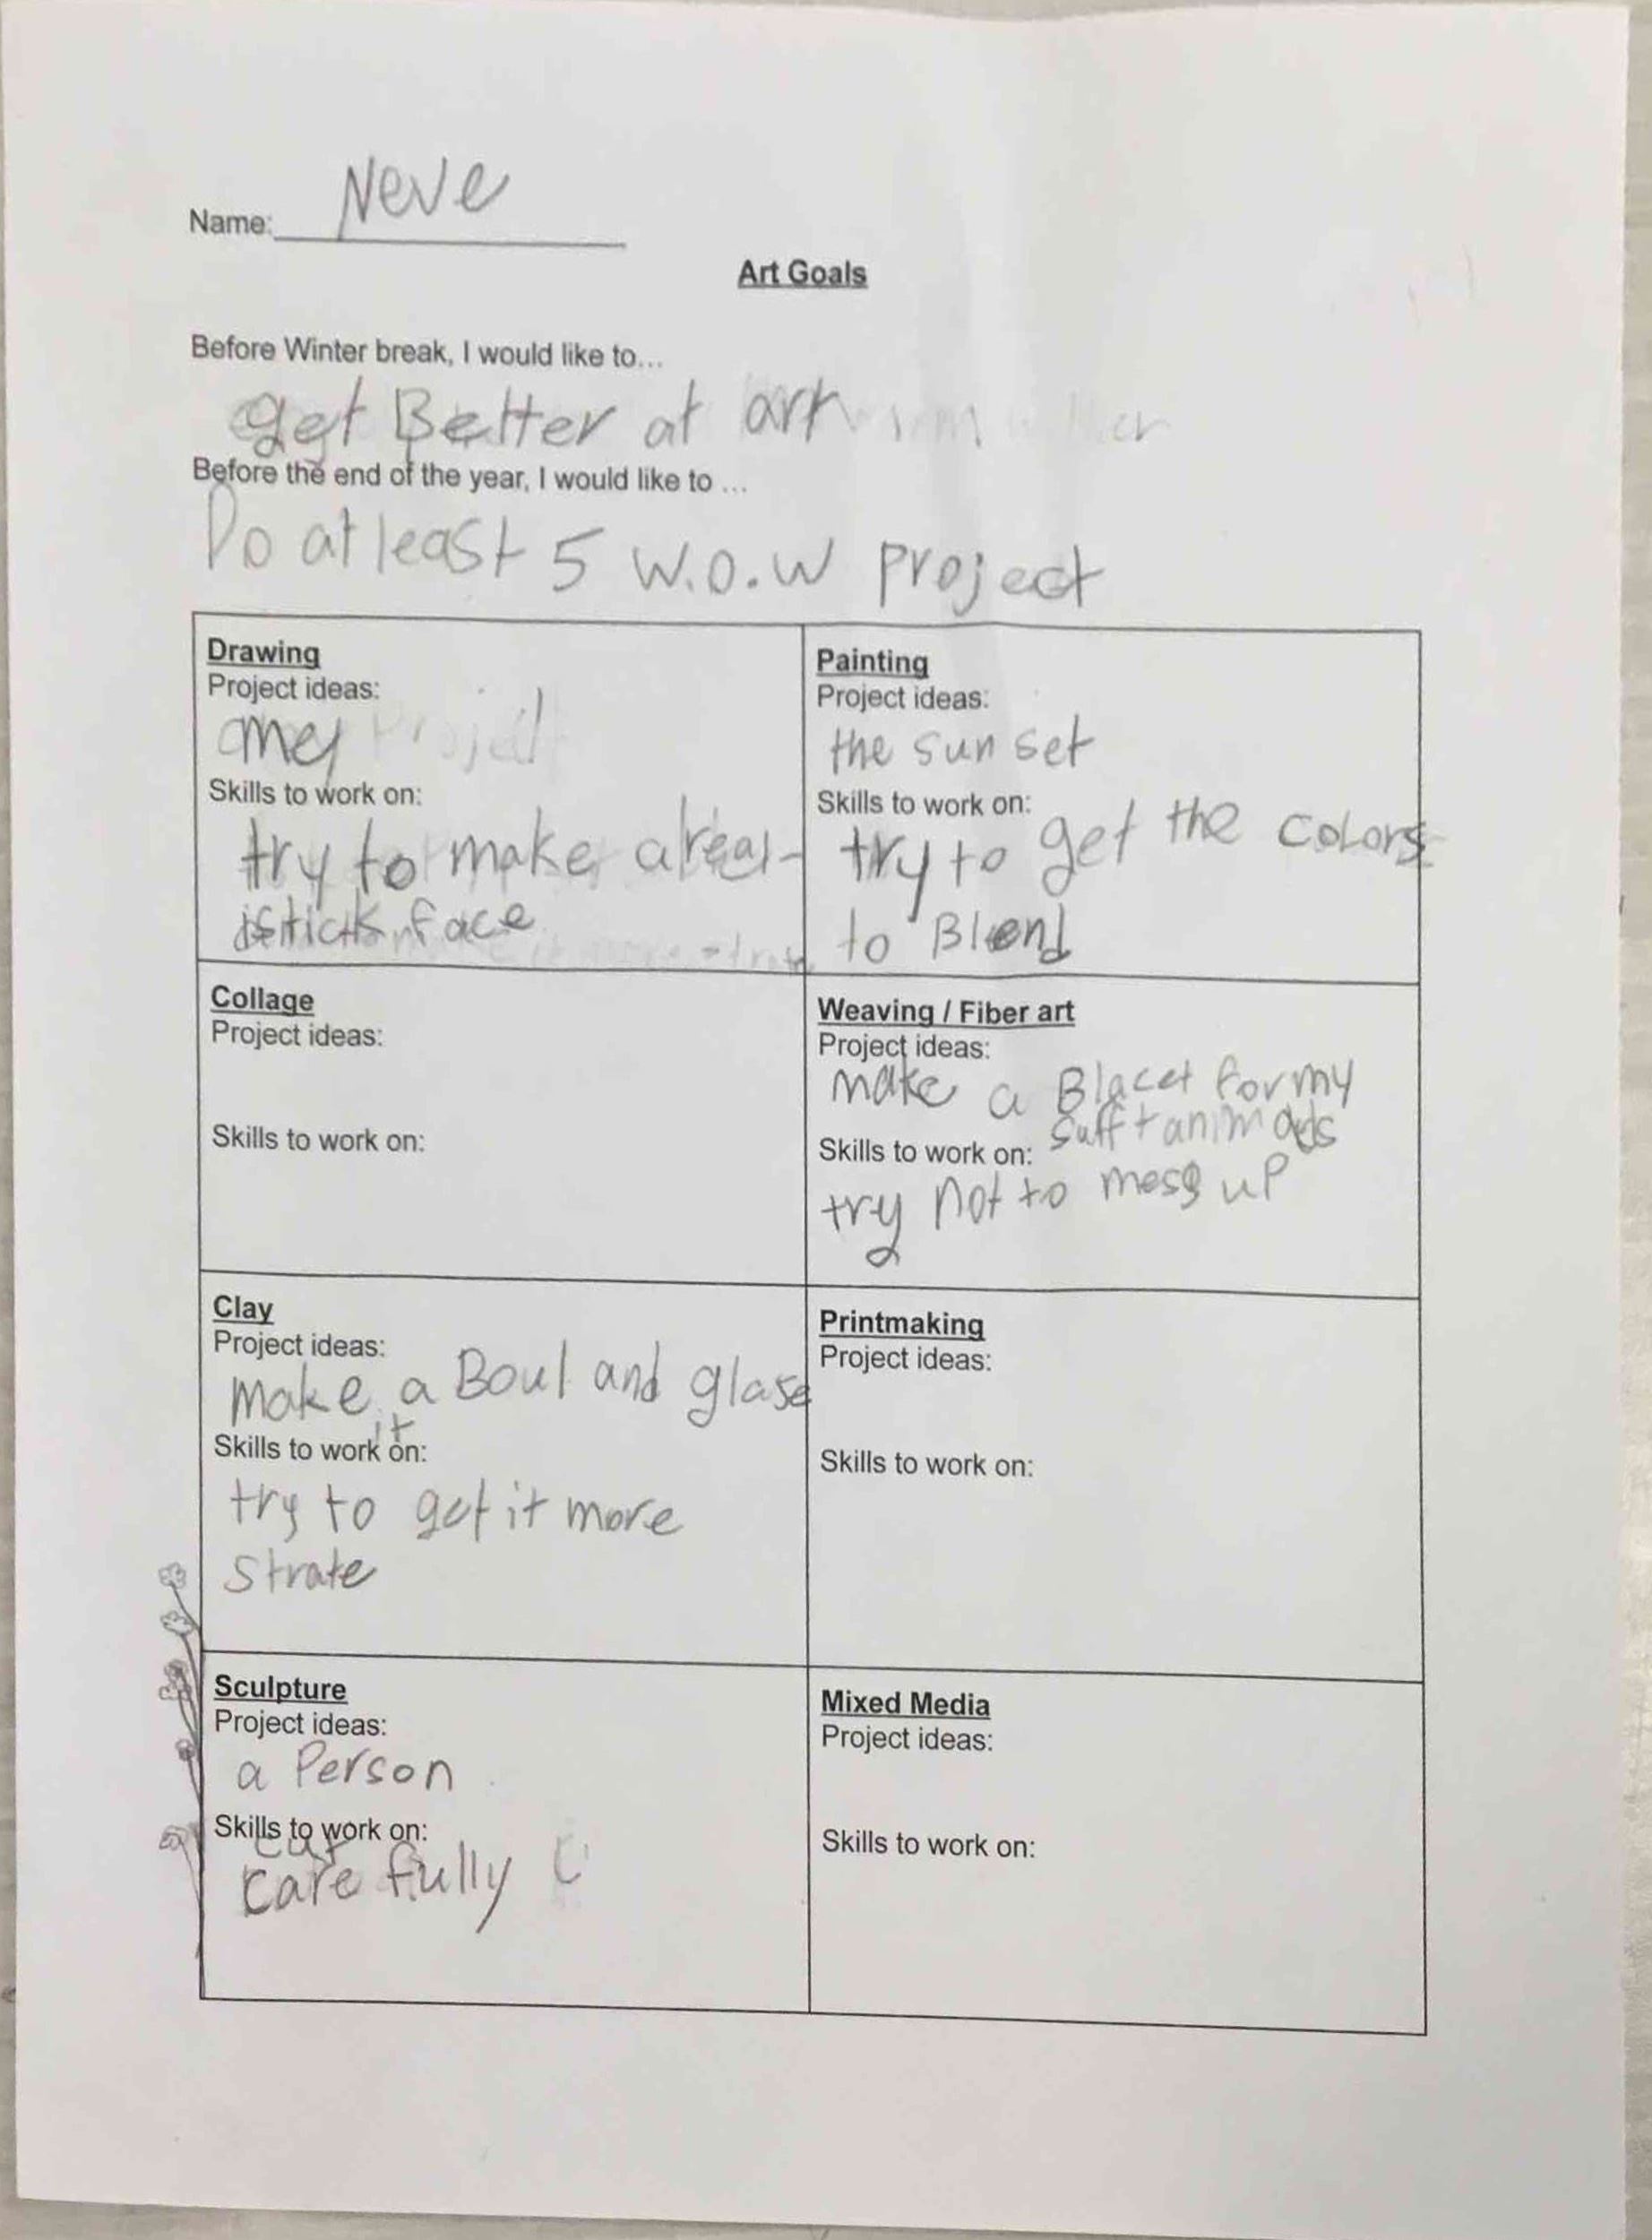 Name: Neve
Art Goals
Before Winter break, I would like to...
get Better at art
Before the end of the year, I would like to ...
Do at least 5 W.O.W project
Drawing
Project ideas:
me
Skills to work on:
try to make a real-
istick face
Painting
Project ideas:
the sun set
Skills to work on:
try to get the colors
to Blend
Collage
Project ideas:
Skills to work on:
Weaving / Fiber art
Project ideas:
make a Blacet for my
sufft animals
Skills to work on:
try not to mess up
Clay
Project ideas:
make a Boul and glase
it
Skills to work on:
try to get it more
strate
Printmaking
Project ideas:
Skills to work on:
Sculpture
Project ideas:
a Person
Skills to work on:
cut
carefully
Mixed Media
Project ideas:
Skills to work on: